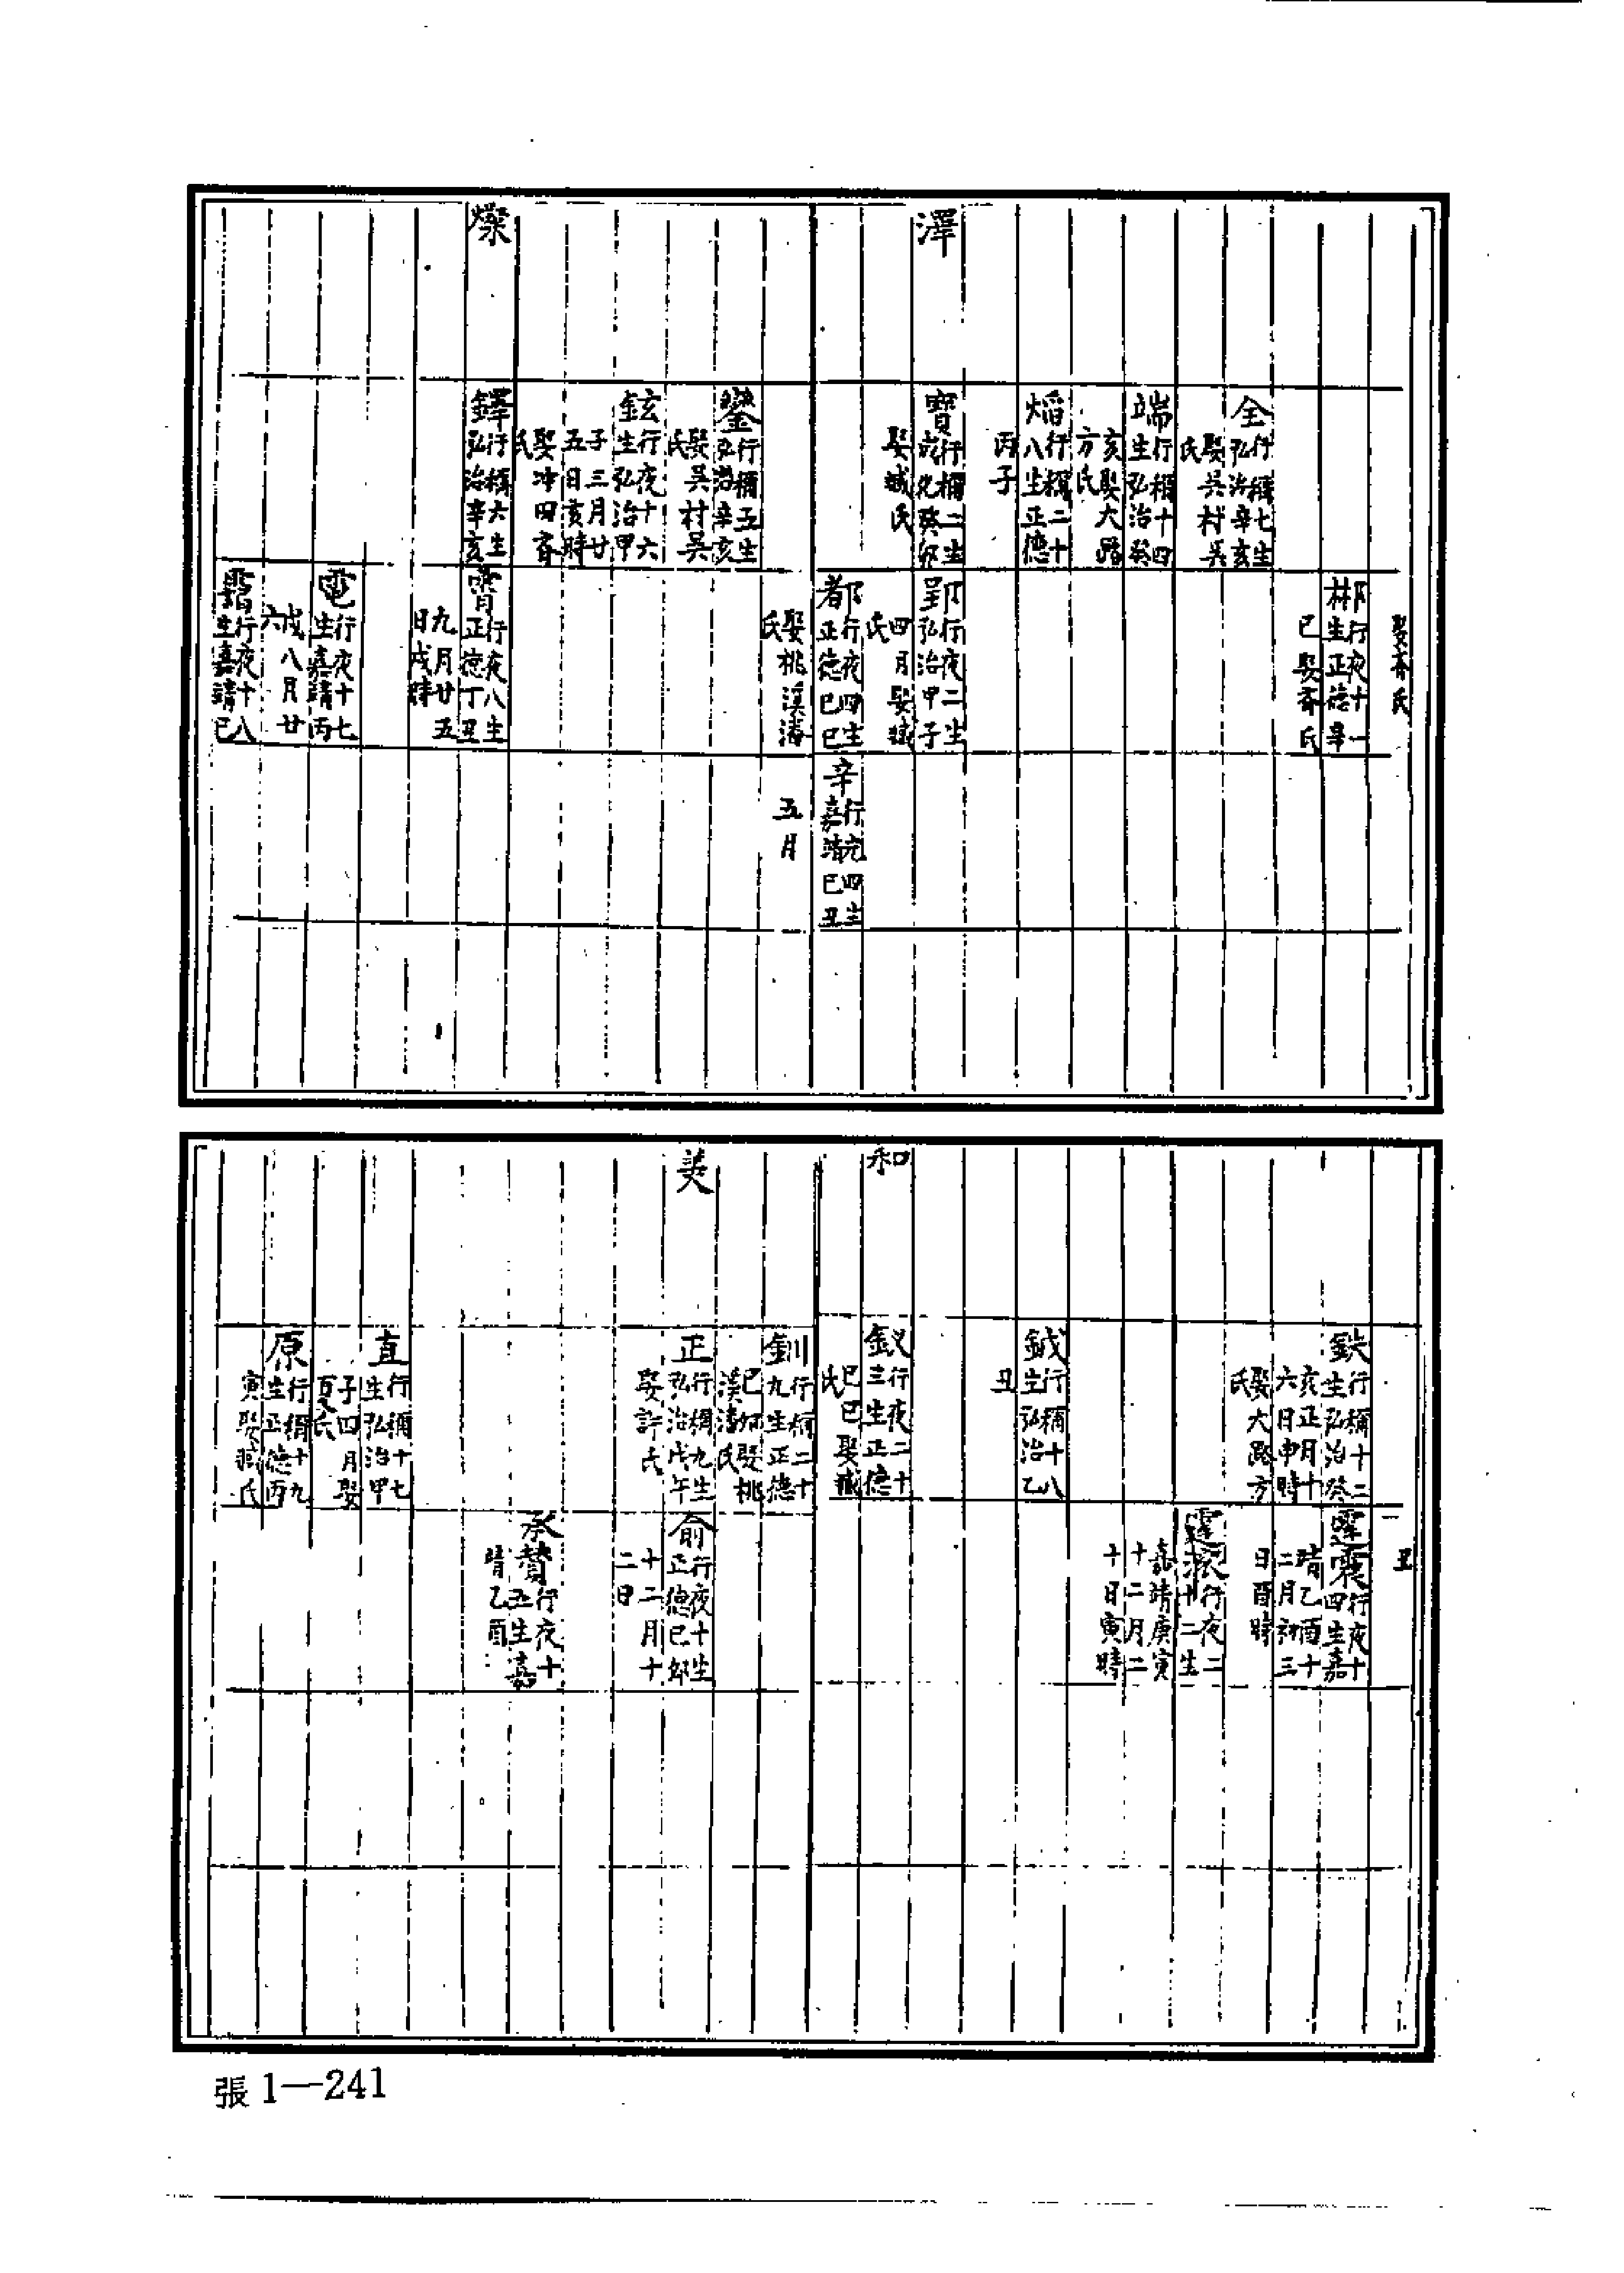 娶齊氏
郴行夜十一生正德辛
巳娶齊氏
全行稱七生弘治辛亥
娶吳村吳氏
端行稱十四生弘治癸
亥娶大路方氏
熖行稱二十八生正德
丙子
澤
寶行稱二生成化癸卯
娶臧氏
郢行夜二生弘治甲子
四月娶臧氏
都行夜四生正德己巳
娶桃溪潘氏
辛行完四生嘉靖己丑
五月
鑾行稱五生弘治辛亥
娶吳村吳氏
鉉行夜十六生弘治甲
子三月廿五日亥時
娶冲田齊氏
燦
鐸行稱六生弘治辛亥
霄行夜八生正德丁丑
九月廿五日戌時
電行夜十七生嘉靖丙
戌八月廿六
霜行夜十八生嘉靖己
丑
鈇行稱十二生弘治癸
亥正月十六日申時
娶大路方氏
霆震行夜十四生嘉
靖乙酉十二月初三
日酉時
霆振行夜二十二生
嘉靖庚寅十二月二
十日寅時
鉞行稱十八生弘治乙
丑
和
釵行夜二十三生正德
己巳娶臧氏
釧行稱二十九生正德
己卯娶桃溪潘氏
美
正行稱九生弘治戊午
娶許氏
俞行夜十生正德己卯
十二月十二日
承贊行夜十五生嘉
靖乙酉
直行稱十七生弘治甲
子四月娶夏氏
原行稱十九生正德丙
寅娶臧氏
張1—241